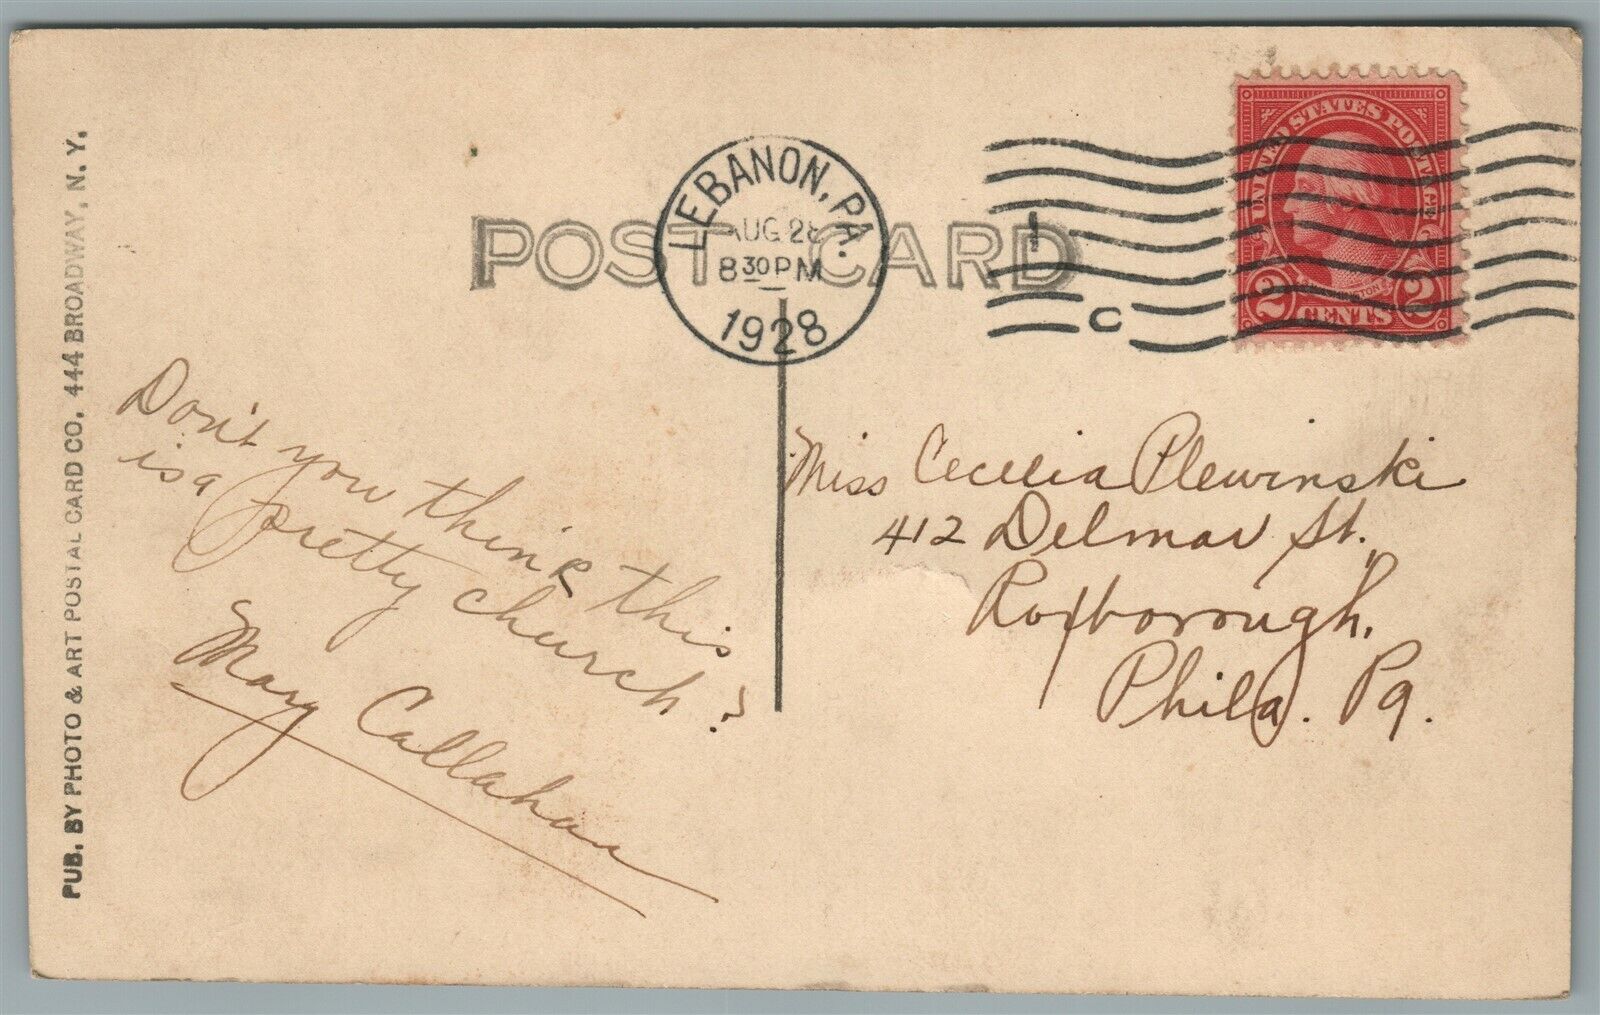 PUB. BY PHOTO & ART POSTAL CARD CO. 444 BROADWAY, N. Y.
POST CARD
LEBANON, PA.
AUG 28
8 30 PM
1928
C
UNITED STATES POSTAGE
2 CENTS 2
Don't you think this
is a pretty church?
Mary Callahan
Miss Cecelia Plewinski
412 Delmar St.
Roxborough,
Phila. Pa.